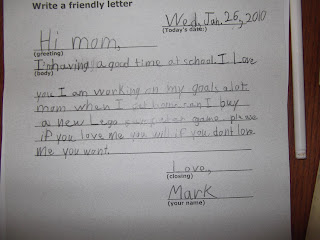 Write a friendly letter
Wed, Jan. 26, 2010
(Today's date:)
Hi mom,
(greeting)
I'm having a good time at school. I Love
(body)
you I am working on my goals alot
mom when I get home can I buy
a new Lego game please
if you love me you will if you dont love
me you wont.
Love,
(closing)
Mark
(your name)